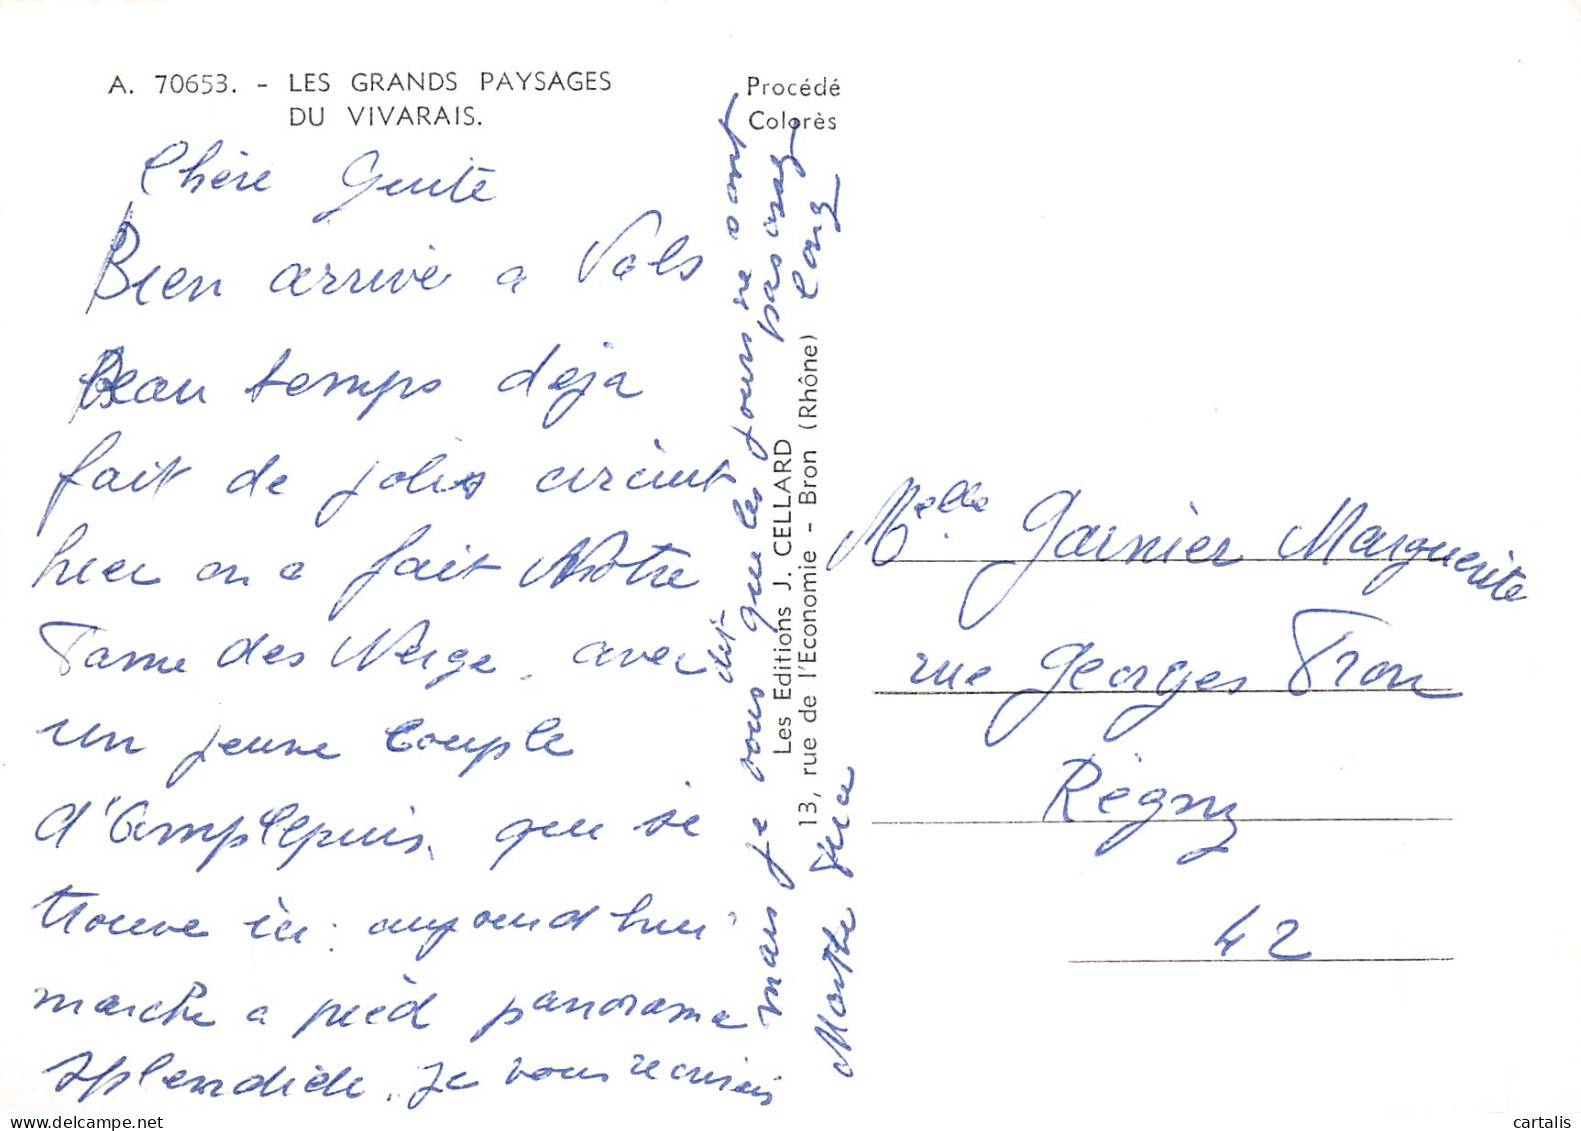 A. 70653. - LES GRANDS PAYSAGES
DU VIVARAIS.
Chère Guite
Bien arrivé a Vals
Beau temps déja
fait de jolis circuit
hier on a fait Notre
Dame des Neige. avec
un jeune couple
d'Amplepuis. qui se
trouve ici. aujourd'hui
marche a pied panorama
splendide. Je vous
mais je vous dit que les jours ne sont
pas assez
long
Marthe
Procédé
Colorès
Les Editions J. CELLARD
13, rue de l'Economie - Bron (Rhône)
Melle. Garnier Marguerite
rue Georges Tron
Régny
42
cartalis